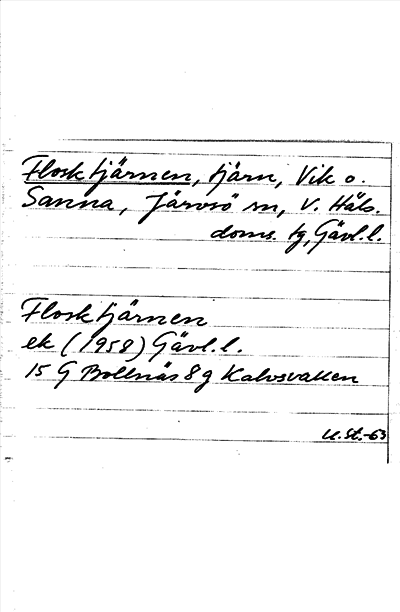 Flosktjärnen, tjärn, Vik o.
Sanna, Järvsö sn, V. Häls.
doms. tg, Gävl. l.
Flosktjärnen
ek (1958) Gävl. l.
15 G Bollnäs 8 g Kalvsvallen
U. St. -63